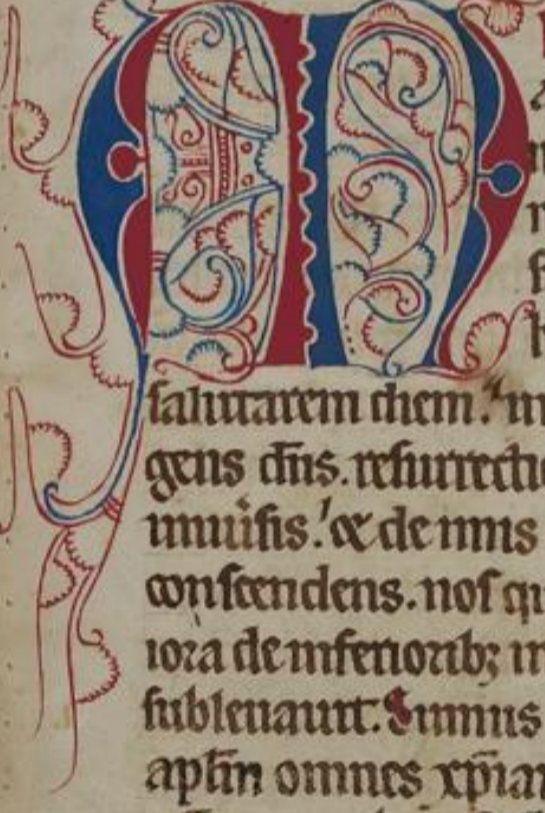 M
salutarem diem. in
gens dñs. resurrectio
inuisis. & de imis
conscendens. nos qu
iora de inferioribꝫ in
subleuauit. Sumus
aplm̄ omnes xp̄ian